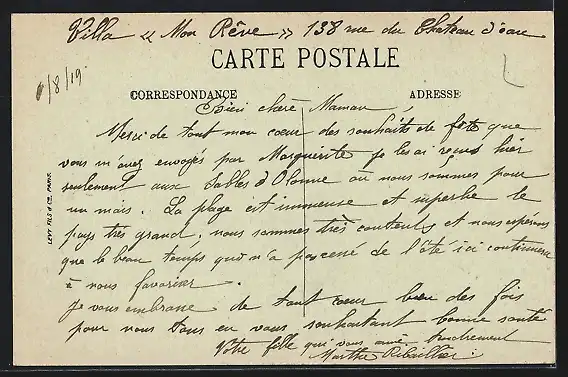 Villa « Mon Rêve » 138 rue du Chateau d'eau
CARTE POSTALE
/8/19
CORRESPONDANCE
ADRESSE
Bien chère Maman,
Merci de tout mon cœur des souhaits de fête que
vous m'avez envoyés par Marguerite je les ai reçus hier
seulement aux Sables d'Olonne où nous sommes pour
un mois. La plage est immense et superbe le
pays très grand, nous sommes très contents et nous espérons
que le beau temps qui n'a pas cessé de l'été ici continuera
à nous favoriser.
Je vous embrasse de tout cœur bien des fois
pour nous tous en vous souhaitant bonne santé
Votre fille qui vous aime tendrement
Marthe
LEVY FILS & Cie, PARIS.